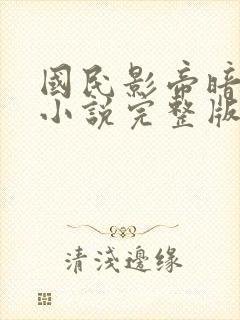 國民影帝暗
小說完整版
清淺邊缘